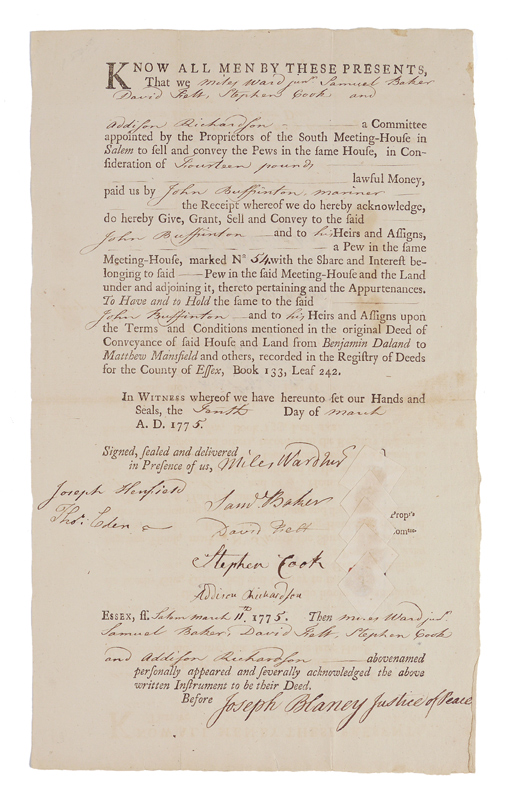 KNOW ALL MEN BY THESE PRESENTS,
That we Miles Ward junr Samuel Baker
David Felt, Stephen Cook and
Addison Richardson a Committee
appointed by the Proprietors of the South Meeting-House in
Salem to sell and convey the Pews in the same House, in Con-
sideration of Fourteen pounds
lawful Money,
paid us by John Buffinton mariner
the Receipt whereof we do hereby acknowledge,
do hereby Give, Grant, Sell and Convey to the said
John Buffinton and to his Heirs and Assigns,
a Pew in the same
Meeting-House, marked No 54. with the Share and Interest be-
longing to said Pew in the said Meeting-House and the Land
under and adjoining it, thereto pertaining and the Appurtenances.
To Have and to Hold the same to the said
John Buffinton and to his Heirs and Assigns upon
the Terms and Conditions mentioned in the original Deed of
Conveyance of said House and Land from Benjamin Daland to
Matthew Mansfield and others, recorded in the Registry of Deeds
for the County of Essex, Book 133, Leaf 242.
In WITNESS whereof we have hereunto set our Hands and
Seals, the Tenth Day of March
A. D. 1775.
Signed, sealed and delivered
in Presence of us, Miles Ward junr
Joseph Henfield
Saml Baker
Thos. Eden
David Felt
Propr
Comm
Stephen Cook
Addison Richardson
ESSEX, ss. Salem March 11th 1775. Then Miles Ward junr
Samuel Baker, David Felt, Stephen Cook
and Addison Richardson abovenamed
personally appeared and severally acknowledged the above
written Instrument to be their Deed.
Before Joseph Blaney Justice of Peace